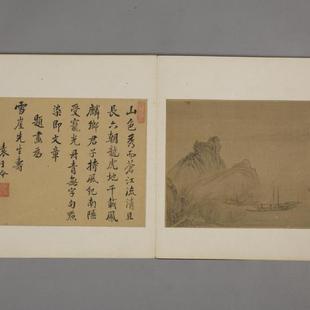 山色秀而蒼江流清且
長六朝龍虎地千載鳳
麟鄉君子持風紀南陲
受寵光丹青無字句點
染即文章
題畫為
雪崖先生壽
袁于令